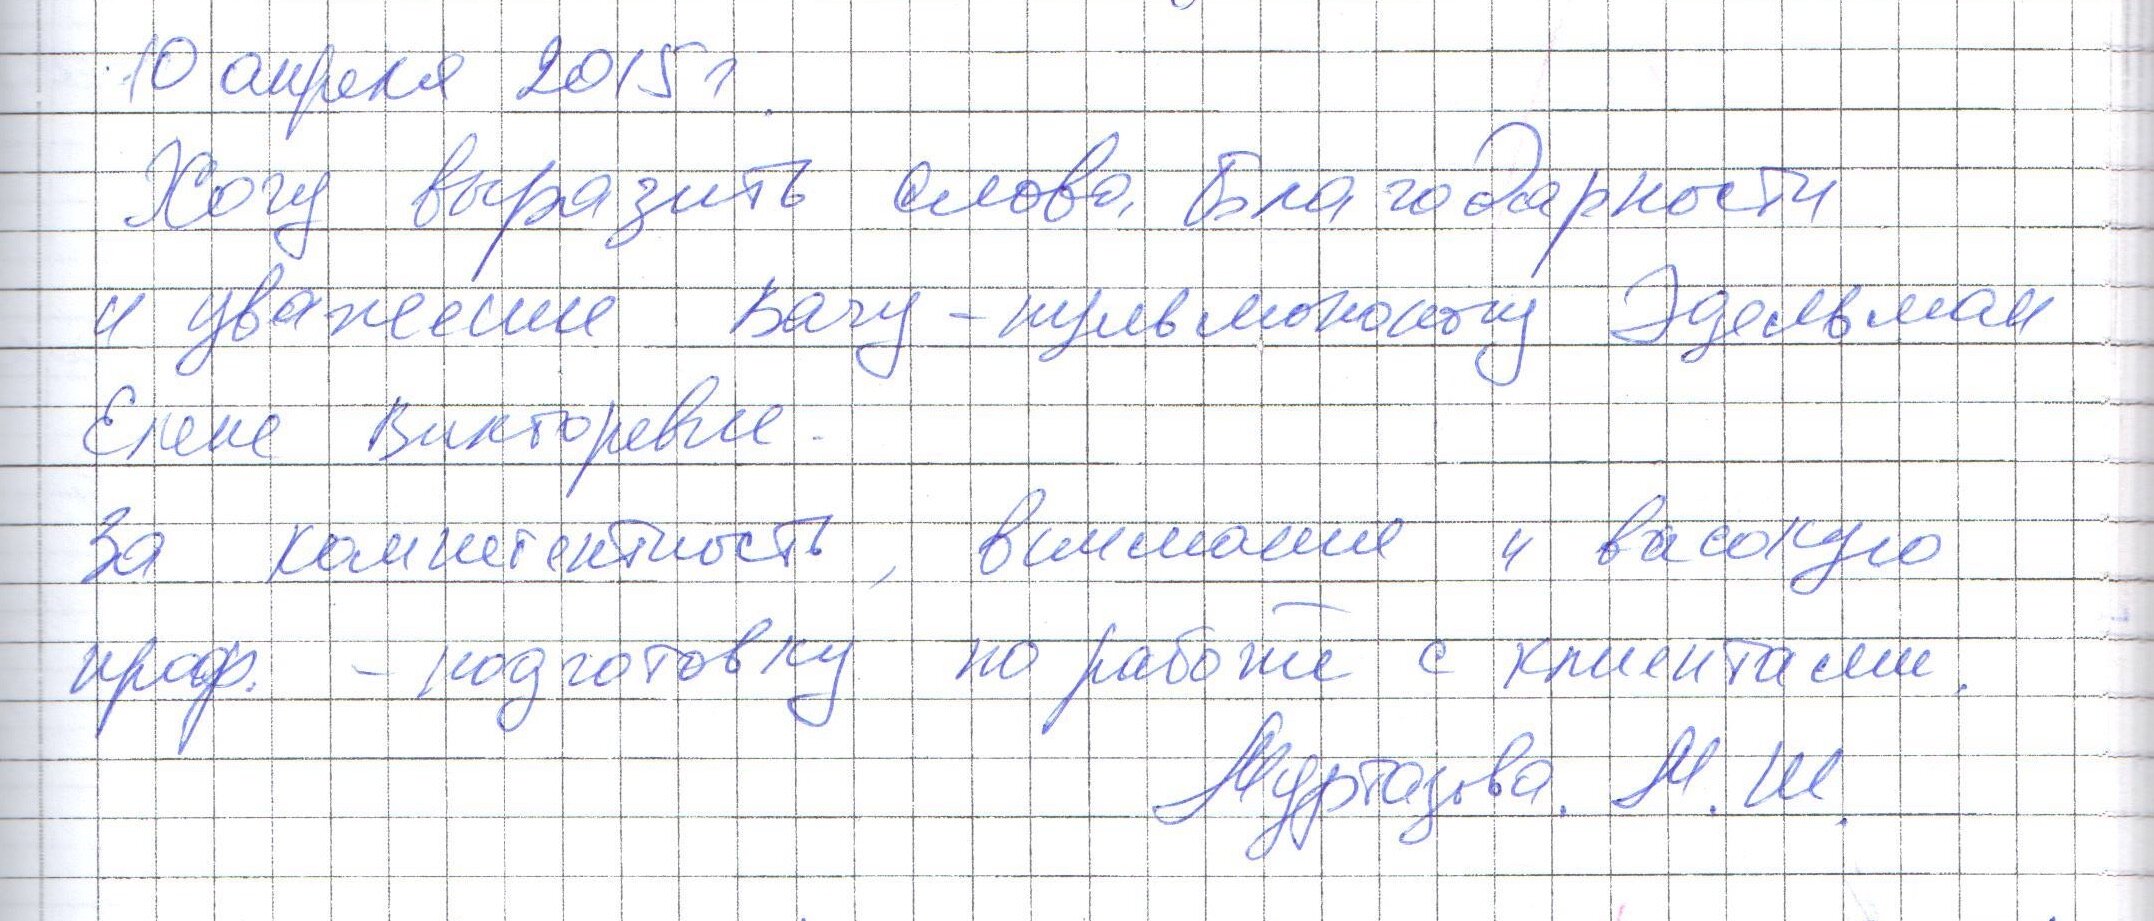 10 апреля 2015 г.
Хочу выразить слова благодарности
и уважение вачу-пульмонологу Эдельман
Елене Викторевне.
За компетентность, внимание и васокую
проф. - подготовку по работе с клиентами.
Муртазова. М. Ш.